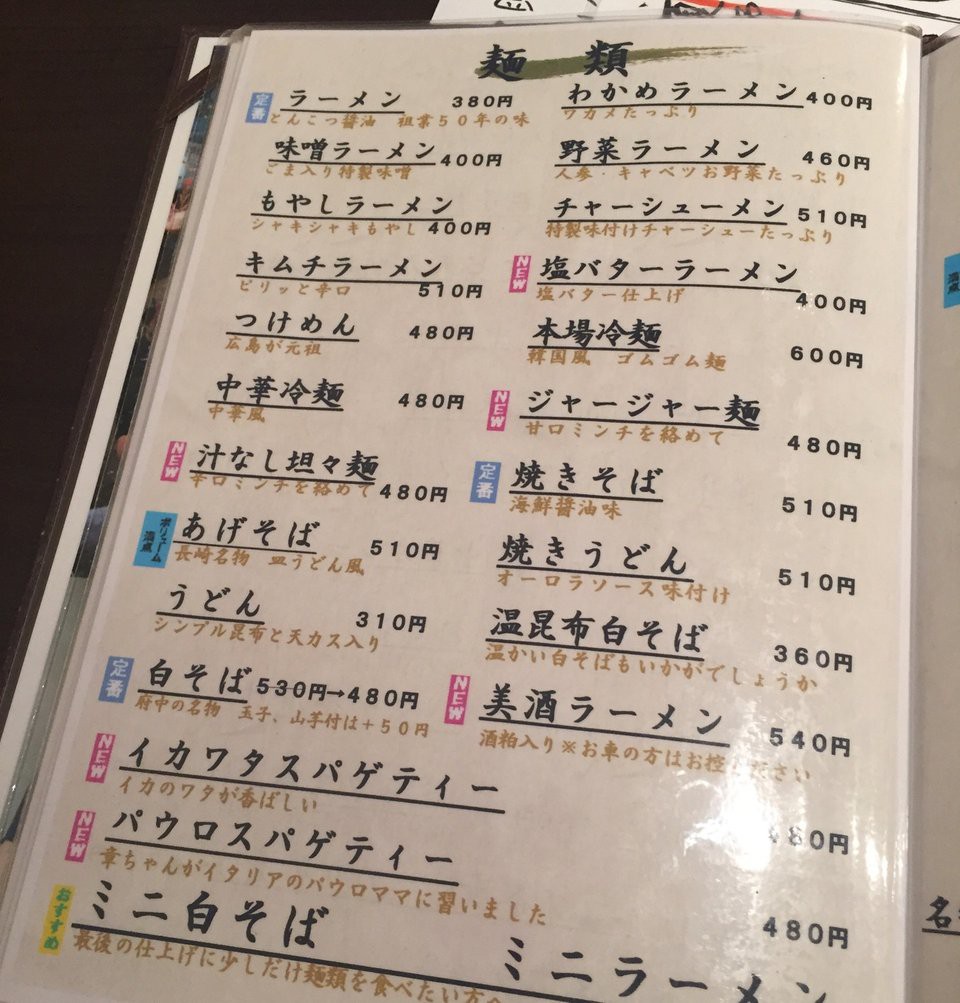 麺 類
定番 ラーメン 380円
とんこつ醤油 祖業50年の味
わかめラーメン 400円
ワカメたっぷり
味噌ラーメン 400円
ごま入り特製味噌
野菜ラーメン 460円
人参・キャベツお野菜たっぷり
もやしラーメン
シャキシャキもやし 400円
チャーシューメン 510円
特製味付けチャーシューたっぷり
キムチラーメン
ピリッと辛口 510円
NEW 塩バターラーメン
塩バター仕上げ 400円
つけめん 480円
広島が元祖
本場冷麺 600円
韓国風 ゴムゴム麺
中華冷麺 480円
中華風
NEW ジャージャー麺
甘口ミンチを絡めて 480円
NEW 汁なし坦々麺
辛口ミンチを絡めて 480円
定番 焼きそば 510円
海鮮醤油味
ボリューム満点 あげそば 510円
長崎名物 皿うどん風
焼きうどん 510円
オーロラソース味付け
うどん 310円
シンプル昆布と天カス入り
温昆布白そば 360円
温かい白そばもいかがでしょうか
定番 白そば 530円→480円
府中の名物 玉子、山芋付は+50円
NEW 美酒ラーメン 540円
酒粕入り※お車の方はお控ください
NEW イカワタスパゲティー
イカのワタが香ばしい 480円
NEW パウロスパゲティー
章ちゃんがイタリアのパウロママに習いました 480円
おすすめ ミニ白そば
ミニラーメン
最後の仕上げに少しだけ麺類を食べたい方へ
満点
名